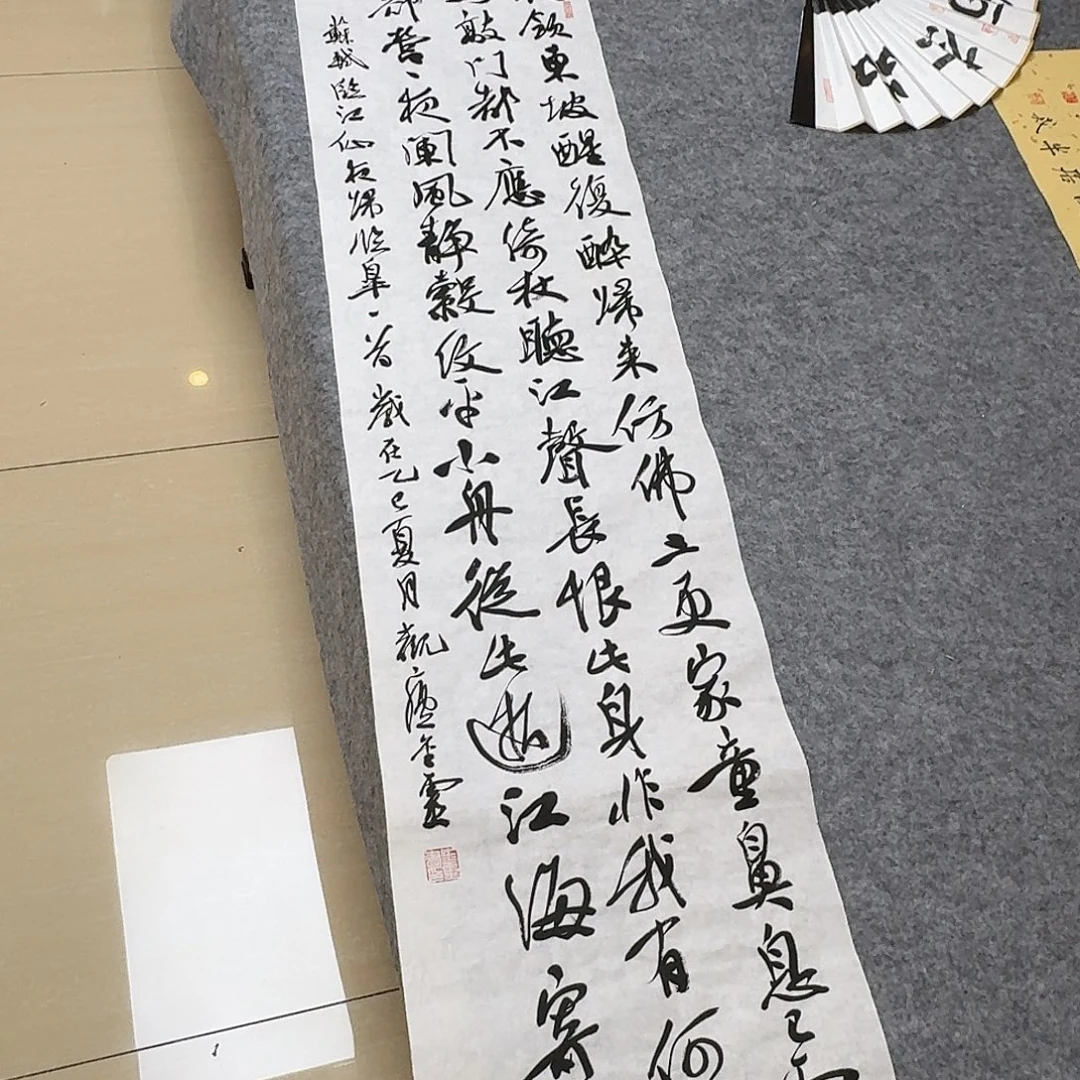 飲東坡醒復醉歸來仿佛三更家童鼻息已雷
敲門都不應倚杖聽江聲長恨此身非我有何
營〻夜闌風靜縠紋平小舟從此逝江海寄
蘇軾臨江仙夜歸臨皋一首歲在乙巳夏月觀廬